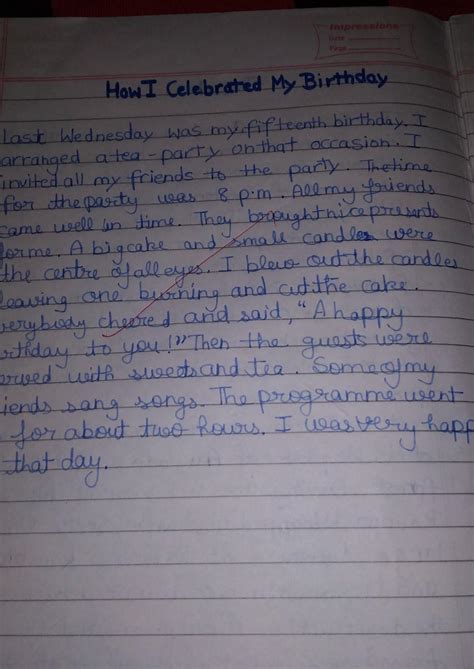 Impressions
Date
Page
How I Celebrated My Birthday
Last Wednesday was my fifteenth birthday. I
arranged a tea-party on that occasion. I
invited all my friends to the party. The time
for the party was 8 p.m. All my friends
came well in time. They braught nice presents
for me. A big cake and small candles were
the centre of all eyes. I blew out the candles
leaving one burning and cut the cake.
verybody cheered and said, "A happy
irthday to you!" Then the guests were
erved with sweets and tea. Some of my
iends sang songs. The programme went
for about two hours. I was very happ
that day.